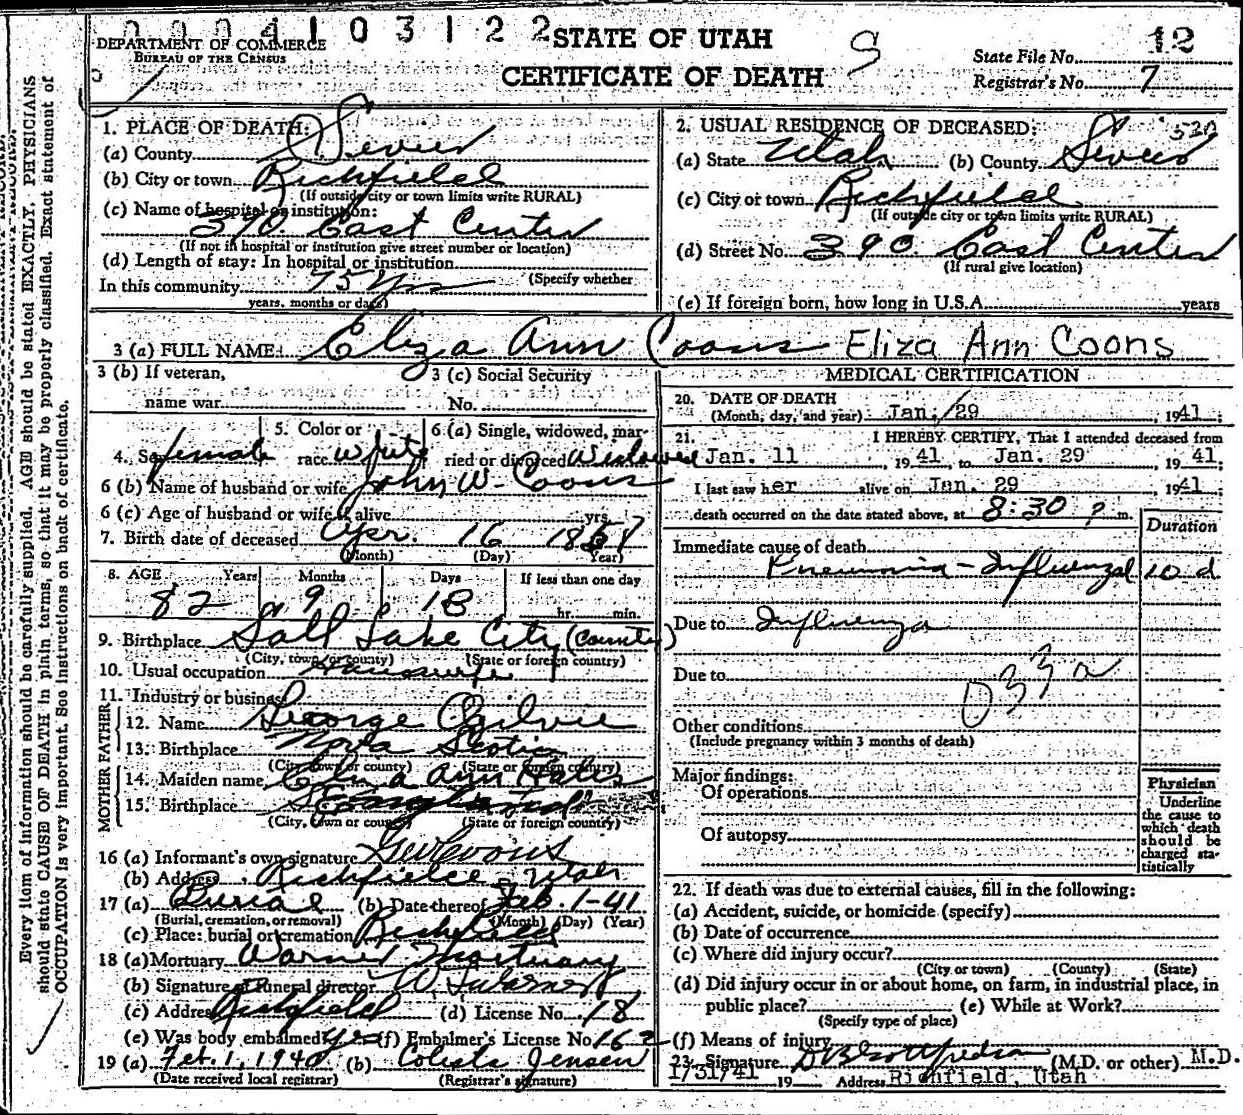 0 0 0 4 1 0 3 1 2 2
DEPARTMENT OF COMMERCE
BUREAU OF THE CENSUS
STATE OF UTAH
CERTIFICATE OF DEATH
S
State File No. 12
Registrar's No. 7
Every item of information should be carefully supplied. AGE should be stated EXACTLY. PHYSICIANS
should state CAUSE OF DEATH in plain terms, so that it may be properly classified. Exact statement of
OCCUPATION is very important. See instructions on back of certificate.
1. PLACE OF DEATH:
(a) County Sevier
(b) City or town Richfield
(If outside city or town limits write RURAL)
(c) Name of hospital or institution:
390 East Center
(If not in hospital or institution give street number or location)
(d) Length of stay: In hospital or institution
(Specify whether
In this community 75 yrs
years, months or days)
2. USUAL RESIDENCE OF DECEASED: 520
(a) State Utah (b) County Sevier
(c) City or town Richfield
(If outside city or town limits write RURAL)
(d) Street No. 390 East Center
(If rural give location)
(e) If foreign born, how long in U.S.A. years
3 (a) FULL NAME: Eliza Ann Coons Eliza Ann Coons
3 (b) If veteran,
name war
3 (c) Social Security
No.
4. Sex female
5. Color or
race white
6 (a) Single, widowed, mar-
ried or divorced Widowed
6 (b) Name of husband or wife John W. Coons
6 (c) Age of husband or wife if alive yrs.
7. Birth date of deceased Apr. 16
(Month) (Day) Year)
8. AGE Years Months Days If less than one day
82 9 13 hr. min.
9. Birthplace Salt Lake City (County)
(City, town or county) (State or foreign country)
10. Usual occupation Housewife
11. Industry or business
FATHER
12. Name George Ogilvie
13. Birthplace Nova Scotia
(City, town or county) (State or foreign country)
MOTHER
14. Maiden name Ann
15. Birthplace England
(City, town or county) (State or foreign country)
16 (a) Informant's own signature Coons
(b) Address Richfield - Utah
17 (a) Burial (b) Date thereof Feb. 1-41
(Burial, cremation, or removal) (Month) (Day) (Year)
(c) Place: burial or cremation Richfield
18 (a) Mortuary Warner Mortuary
(b) Signature of funeral director Warner
(c) Address Richfield (d) License No. 18
(e) Was body embalmed? yes (f) Embalmer's License No. 162
19 (a) Feb. 1, 1940 (b) Celesta Jensen
(Date received local registrar) (Registrar's signature)
MEDICAL CERTIFICATION
20. DATE OF DEATH
(Month, day, and year) Jan. 29 , 1941;
21. I HEREBY CERTIFY, That I attended deceased from
Jan. 11 , 1941, to Jan. 29 , 1941;
I last saw her alive on Jan. 29 , 1941;
death occurred on the date stated above, at 8:30 P m.
Duration
Immediate cause of death
Pneumonia - Influenzal 10 d
Due to Influenza
Due to
033a
Other conditions
(Include pregnancy within 3 months of death)
Major findings:
Of operations
Of autopsy
Physician
Underline
the cause to
which death
should be
charged sta-
tistically
22. If death was due to external causes, fill in the following:
(a) Accident, suicide, or homicide (specify)
(b) Date of occurrence
(c) Where did injury occur?
(City or town) (County) (State)
(d) Did injury occur in or about home, on farm, in industrial place, in
public place? (e) While at Work?
(Specify type of place)
(f) Means of injury
23. Signature (M.D. or other) M.D.
1/31/41 19 Address Richfield, Utah